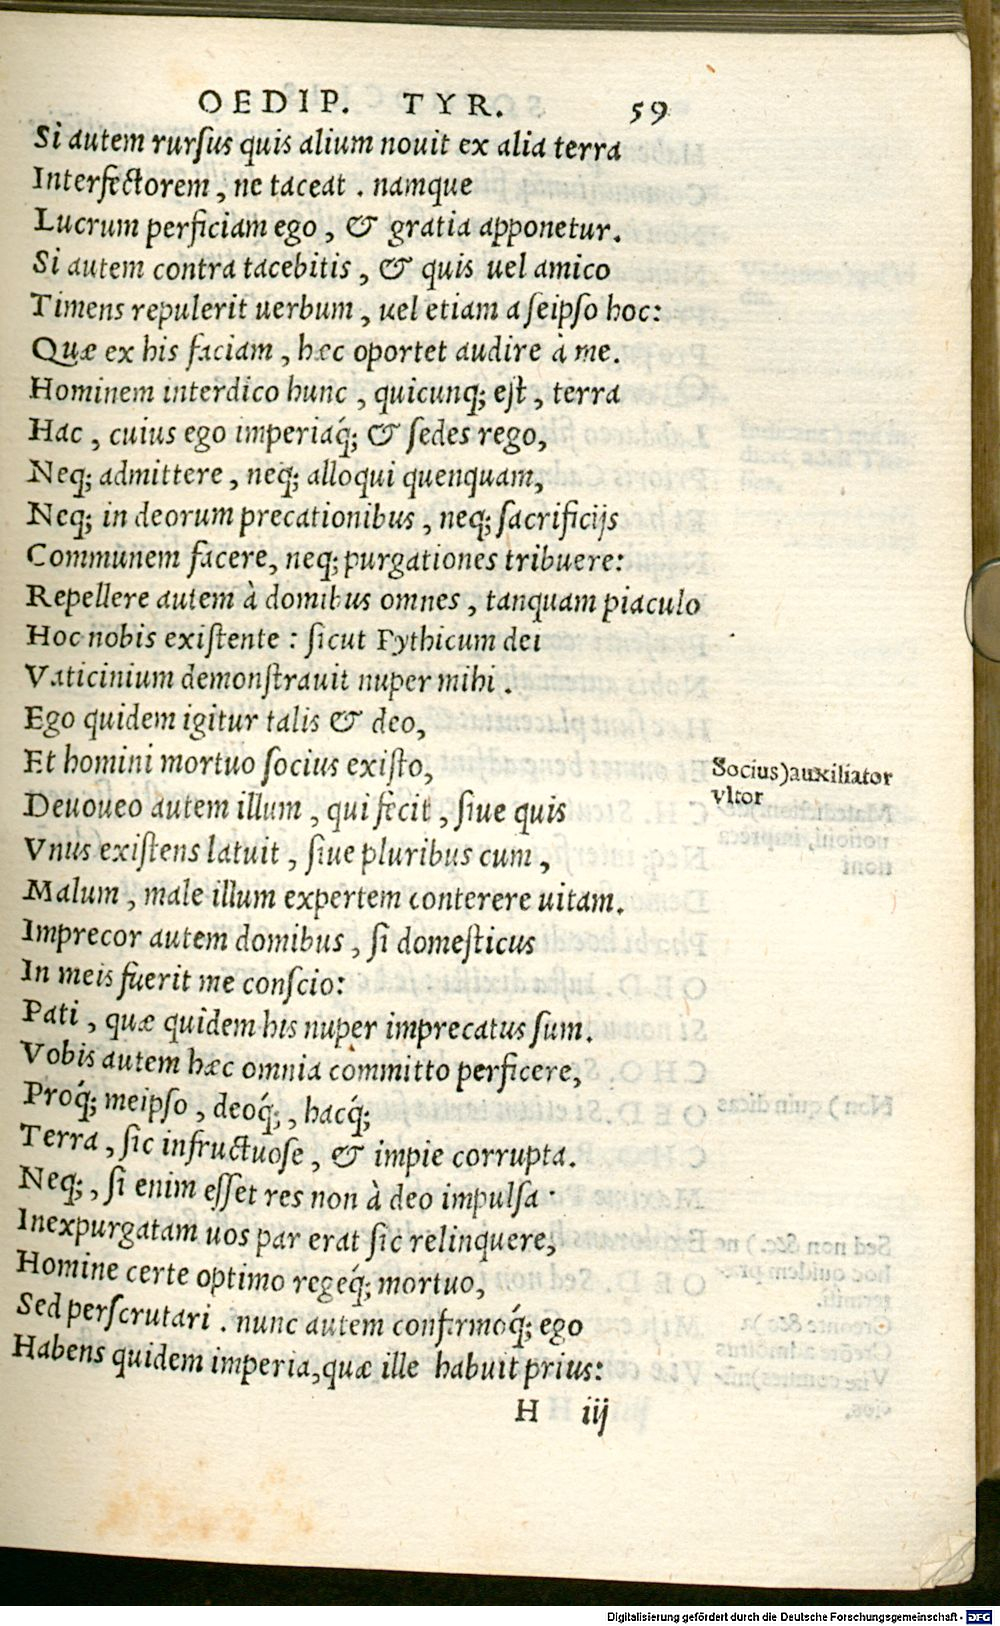 OEDIP. TYR. 59
Si autem rursus quis alium nouit ex alia terra
Interfectorem, ne taceat. namque
Lucrum perficiam ego, & gratia apponetur.
Si autem contra tacebitis, & quis uel amico
Timens repulerit uerbum, uel etiam a seipso hoc:
Quæ ex his faciam, hæc oportet audire à me.
Hominem interdico hunc, quicunq; est, terra
Hac, cuius ego imperiaq́; & sedes rego,
Neq; admittere, neq; alloqui quenquam,
Neq; in deorum precationibus, neq; sacrificijs
Communem facere, neq; purgationes tribuere:
Repellere autem à domibus omnes, tanquam piaculo
Hoc nobis existente: sicut Pythicum dei
Vaticinium demonstrauit nuper mihi.
Ego quidem igitur talis & deo,
Et homini mortuo socius existo,
Socius) auxiliator
vltor
Deuoueo autem illum, qui fecit, siue quis
Vnus existens latuit, siue pluribus cum,
Malum, male illum expertem conterere uitam.
Imprecor autem domibus, si domesticus
In meis fuerit me conscio:
Pati, quæ quidem his nuper imprecatus sum.
Vobis autem hæc omnia committo perficere,
Proq́; meipso, deoq́;, hacq́;
Terra, sic infructuose, & impie corrupta.
Neq;, si enim esset res non à deo impulsa.
Inexpurgatam uos par erat sic relinquere,
Homine certe optimo regeq́; mortuo,
Sed perscrutari. nunc autem confirmoq́; ego
Habens quidem imperia, quæ ille habuit prius:
H iij
Digitalisierung gefördert durch die Deutsche Forschungsgemeinschaft - DFG